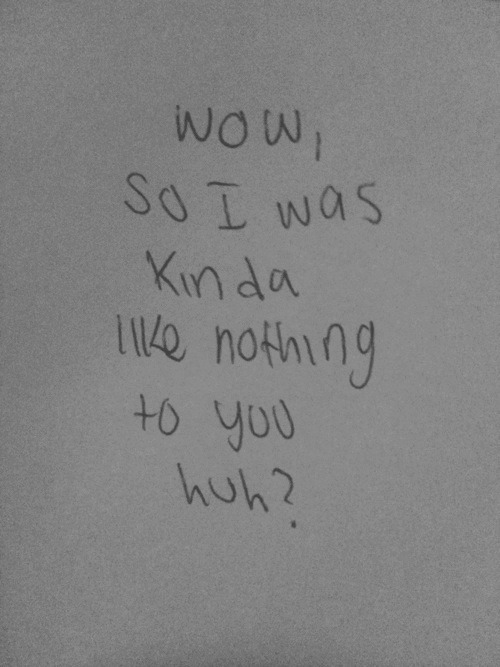 wow,
So I was
Kinda
like nothing
to you
huh?